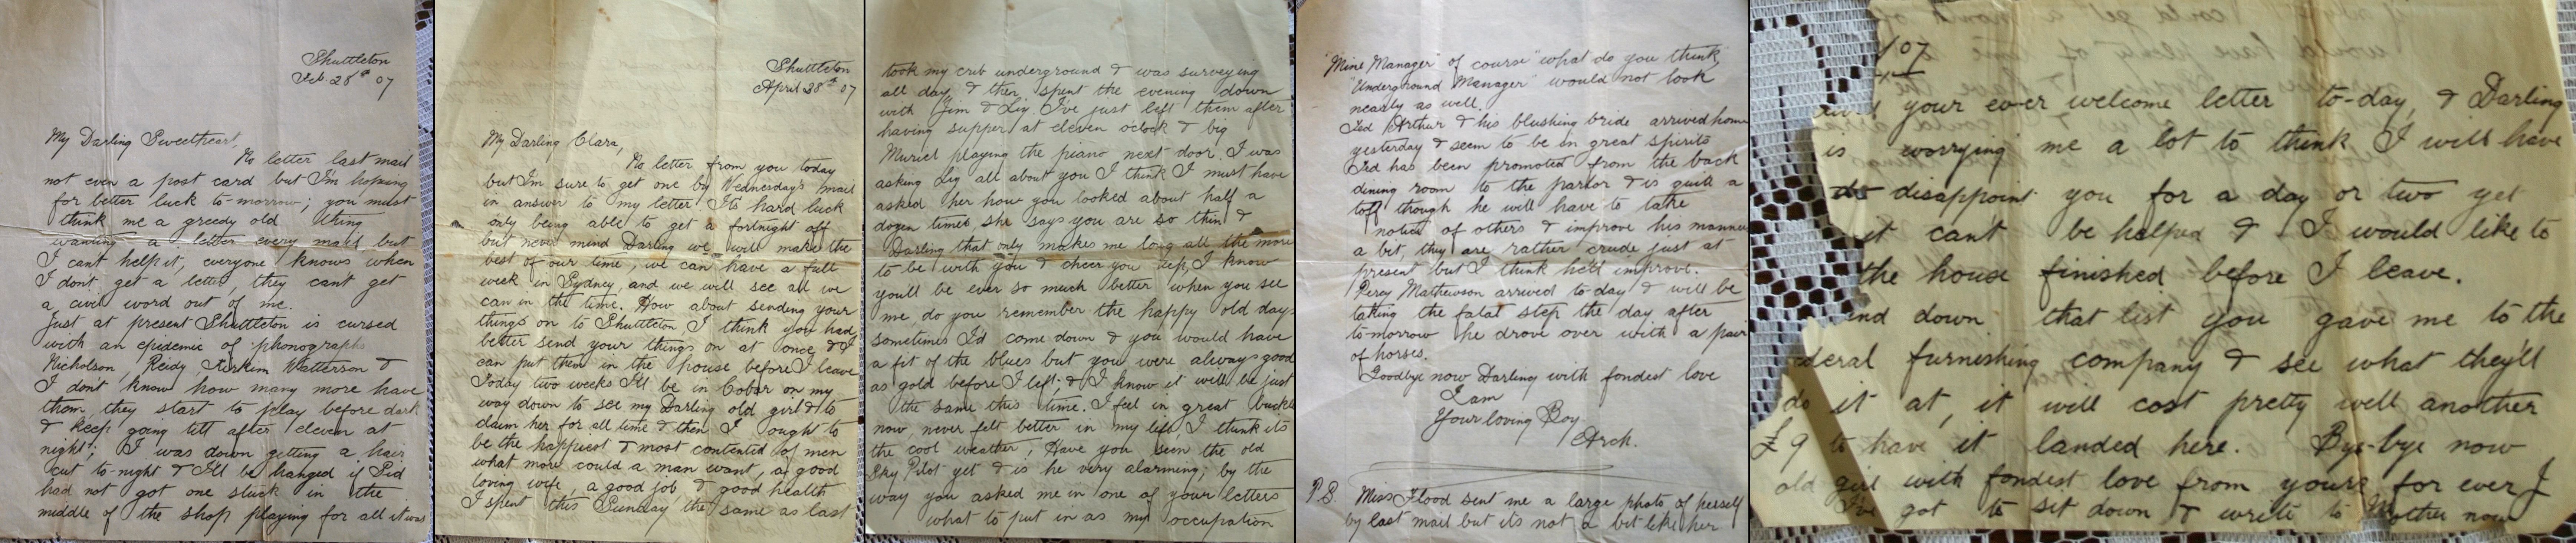 Shuttleton
Feb. 28th 07
My Darling Sweetheart,
No letter last mail
not even a post card but I'm hoping
for better luck to-morrow; you must
think me a greedy old thing
wanting a letter every mail but
I can't help it, everyone knows when
I don't get a letter, they can't get
a civil word out of me.
Just at present Shuttleton is cursed
with an epidemic of phonographs
Nicholson, Reidy Watterson &
I don't know how many more have
them, they start to play before dark
& keep going till after eleven at
night; I was down getting a hair
cut to-night & I'll be hanged if Sid
had not got one stuck in the
middle of the shop playing for all it was
Shuttleton
April 28th 07
My Darling Clara,
No letter from you today
but I'm sure to get one by Wednesday's mail
in answer to my letter. It's hard luck
only being able to get a fortnight off
but never mind Darling we will make the
best of our time, we can have a full
week in Sydney, and we will see all we
can in the time. How about sending your
things on to Shuttleton, I think you had
better send your things on at once & I
can put them in the house before I leave
Today two weeks I'll be in Cobar on my
way down to see my Darling old girl & to
claim her for all time & then I ought to
be the happiest & most contented of men
what more could a man want, a good
loving wife, a good job & good health
I spent this Sunday the same as last
took my crib underground & was surveying
all day, & then spent the evening down
with Jim & Liz. I've just left them after
having supper at eleven o'clock & big
Muriel playing the piano next door. I was
asking Liz all about you I think I must have
asked her how you looked about half a
dozen times she says you are so thin &
Darling that only makes me long all the more
to be with you & cheer you up, I know
you'll be ever so much better when you see
me do you remember the happy old days
sometimes I'd come down & you would have
a fit of the blues but you were always good
as gold before I left; & I know it will be just
the same this time. I feel in great buckle
now, never felt better in my life, I think its
the cool weather, Have you seen the old
Sky Pilot yet & is he very alarming; by the
way you asked me in one of your letters
what to put in as my occupation
"Mine Manager" of course" what do you think,
"Underground Manager" would not look
nearly as well.
Ted Arthur & his blushing bride arrived home
yesterday & seem to be in great spirits
Ted has been promoted from the back
dining room to the parlor & is quite a
toff though he will have to take
notice of others & improve his manners
a bit, they are rather crude just at
present but I think he'll improve.
Percy Mathewson arrived to-day & will be
taking the fatal step the day after
to-morrow he drove over with a pair
of horses.
Goodbye now Darling with fondest love
I am
Your loving Boy
Arch.
P.S. Miss Flood sent me a large photo of herself
by last mail but its not a bit like her
/07
your ever welcome letter to-day, & Darling
is worrying me a lot to think I will have
to disappoint you for a day or two yet
it can't be helped & I would like to
the house finished before I leave.
down that list you gave me to the
furnishing company & see what they'll
do it at, it will cost pretty well another
£9 to have it landed here. Bye-bye now
old girl with fondest love from yours for ever I
I've got to sit down & write to Mother now